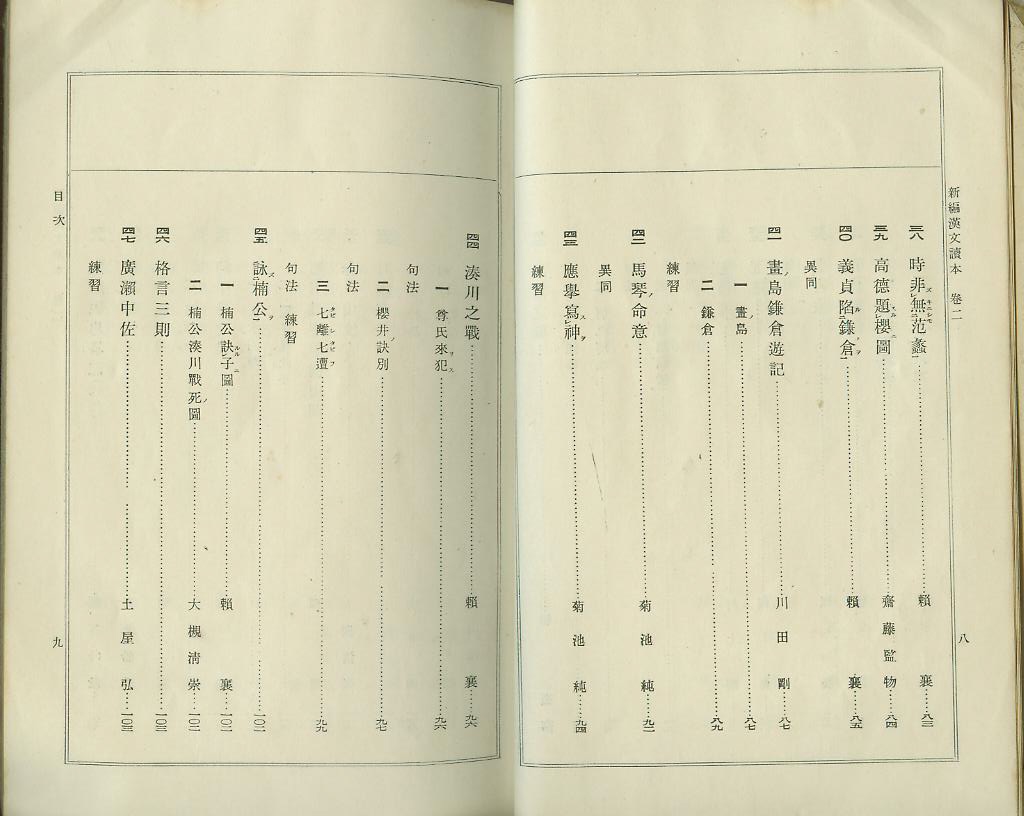 新編漢文讀本 卷二
八
三八 時非無范蠡 賴襄 八三
三九 高德題櫻圖 齋藤監物 八四
四〇 義貞陷鎌倉 賴襄 八五
異同
四一 畫島鎌倉遊記 川田剛 八七
一 畫島 八七
二 鎌倉 八九
練習
四二 馬琴命意 菊池純 九二
異同
四三 應擧寫神 菊池純 九四
練習
四四 湊川之戰 賴襄 九六
一 尊氏來犯 九六
句法
二 櫻井訣別 九七
句法
三 七離七遭 九九
句法 練習
四五 詠楠公 一〇二
一 楠公訣子圖 賴襄 一〇二
二 楠公湊川戰死圖 大槻淸崇 一〇二
四六 格言三則 一〇三
四七 廣瀨中佐 土屋弘 一〇三
練習
目次
九